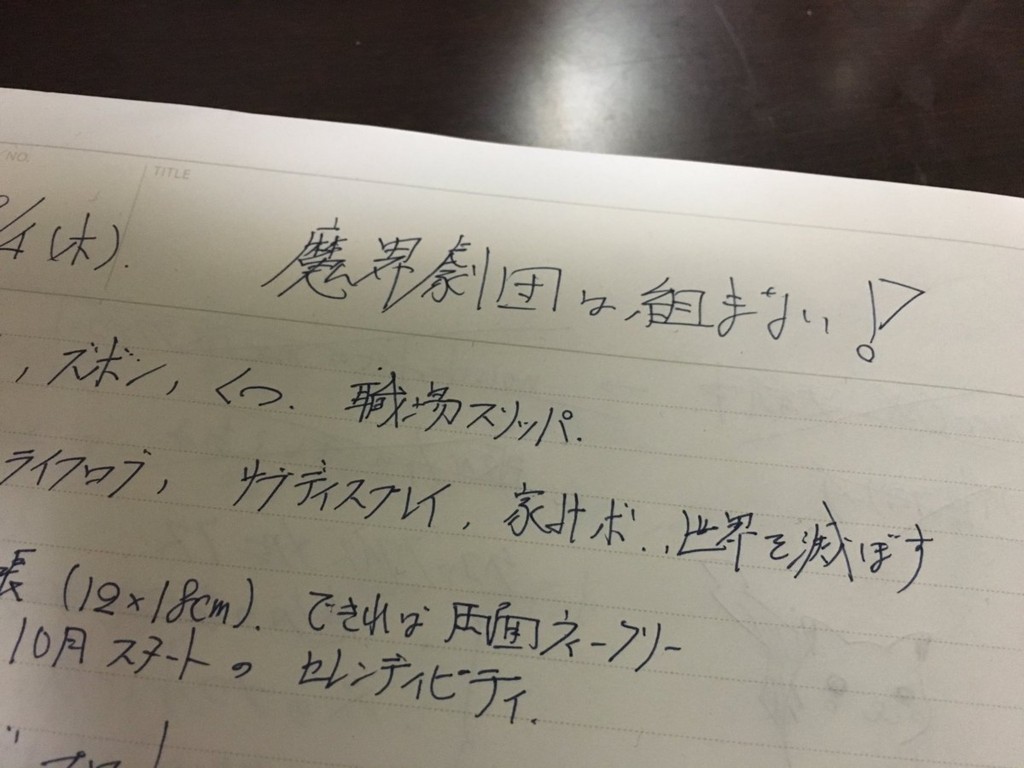 NO. TITLE
/4 (木). 魔界劇団は組まない!
, ズボン, くつ. 職場スリッパ.
ライフログ, サブディスプレイ, 家計ボ.., 世界を滅ぼす
帳 (12×18cm). できれば両面ウィークリー
10月スタートのセレンディピティ.